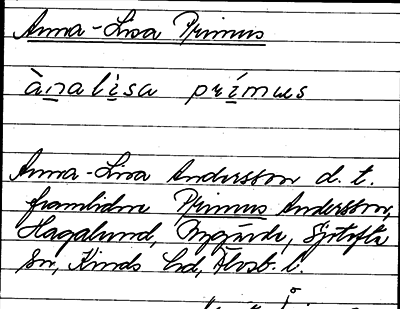 Anna-Lisa Primus
ànalisa prímus
Anna-Lisa Andersson d. t.
framlidne Primus Andersson,
Hagalund, Nygärde, Sjötofta
sn, Kinds hd, Älvsb. l.